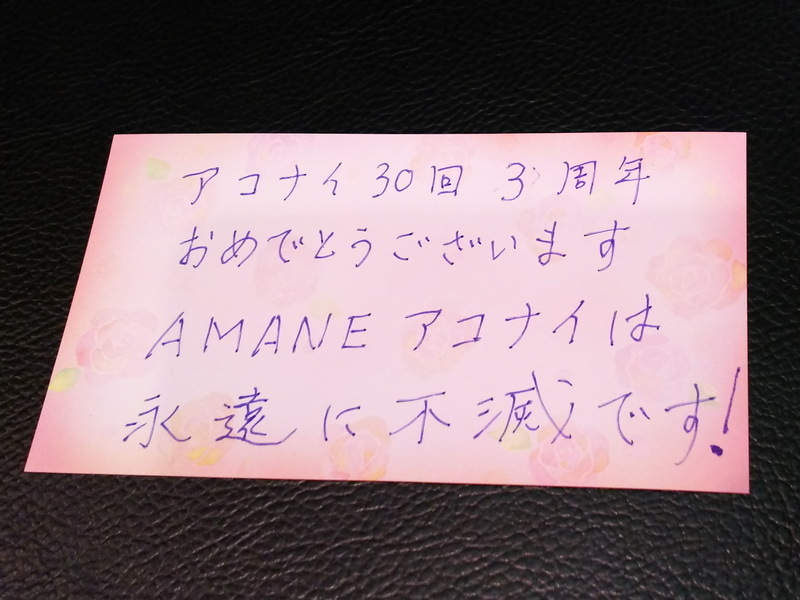 アコナイ30回 3周年
おめでとうございます
AMANE アコナイは
永遠に不滅です!